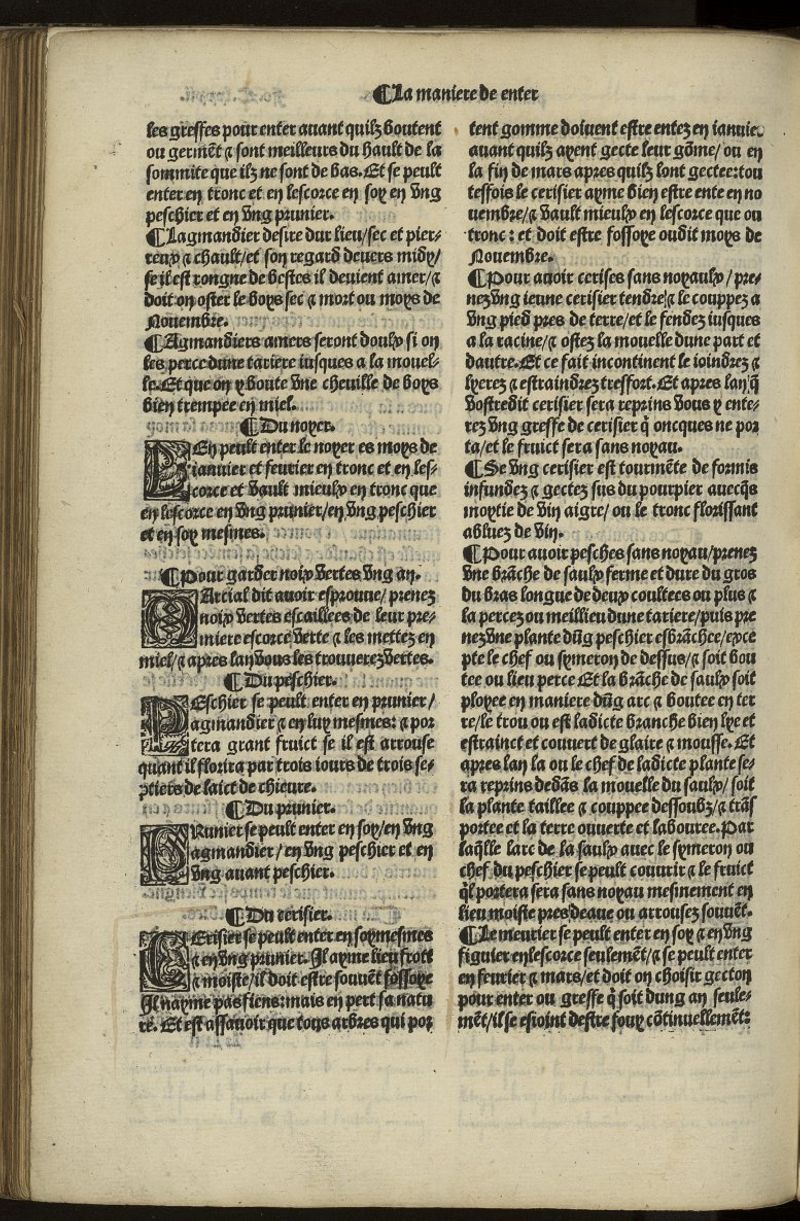 ¶La maniere de enter
les greffes pour enter auant quilz boutent
ou germēt ⁊ sont meilleurs du hault de la
sommite que ilz ne sont de bas. Et se peult
enter en tronc et en lescorce en soy en vng
peschier et en vng prunier.
¶Lagmandier desire dur lieu/sec et pier⸗
reux ⁊ chault/et son regard deuers midy/
se il est rongne de bestes il deuient amer/⁊
doit on oster le boys sec ⁊ mort ou moys de
Nouembre.
¶Agmandiers amers seront doulx si on
les perce dune tariere iusques a la mouel⸗
le. Et que on y boute vne cheuille de boys
bien trempee en miel.
¶Du noyer.
LEn peult enter le noyer es moys de
ianuier et feurier en tronc et en les⸗
corce et vault mieulx en tronc que
en lescorce en vng prunier/en vng peschier
et en soy mesmes.
¶Pour garder noix vertes vng an.
MArcial dit auoir esprouue/prenez
noix vertes escaillees de leur pre⸗
miere escorce verte ⁊ les mettez en
miel/⁊ apres lan vous les trouuerez vertes.
¶Du peschier.
PEschier se peult enter en prunier/
agmandier ⁊ en luy mesmes: ⁊ por
tera grant fruict se il est arrouse
quant il florira par trois iours de trois se⸗
ptiers de laict de chieure.
¶Du prunier.
PRunier se peult enter en soy/en vng
agmandier/en vng peschier et en
vng auant peschier.
¶Du cerisier.
CErisier se peult enter en soy mesmes
⁊ en vng prunier. Il ayme lieu froit
⁊ moiste/il doit estre souuēt fossoye
Il nayme pas fiens: mais en pert sa natu
re. Et est assauoir que tous arbres qui por
tent gomme doiuent estre entez en ianuier
auant quilz ayent gecte leur gōme/ou en
la fin de mars apres quilz lont gectee: tou
tesfois le cerisier ayme bien estre ente en no
uembre/⁊ vault mieulx en lescorce que ou
tronc: et doit estre fossoye oudit moys de
Nouembre.
¶Pour auoir cerises sans noyaulx/pre⸗
nez vng ieune cerisier tendre/⁊ le couppez a
vng pied pres de terre/et le fendez iusques
a la racine/⁊ ostez la mouelle dune part et
dautre. Et ce fait incontinent le ioindrez ⁊
lyerez ⁊ estraindrez tresfort. Et apres lan q̄
vostredit cerisier sera reprins vous y ente⸗
rez vng greffe de cerisier q̄ oncques ne por
ta/et le fruict sera sans noyau.
¶Se vng cerisier est tourmēte de formis
infundez ⁊ gectez sus du pourpier auecq̄s
moytie de vin aigre/ou le tronc florissant
abluez de vin.
¶Pour auoir pesches sans noyau/prenez
vne brāche de saulx ferme et dure du gros
du bras longue de deux coultees ou plus ⁊
la percez ou meillieu dune tariere/puis pre
nez vne plante dūg peschier esbrāchee/exce
pte le chef ou symeron de dessus/⁊ soit bou
tee ou lieu perce Et la brāche de saulx soit
ployee en maniere dūg arc ⁊ boutee en ter
re/le trou ou est ladicte branche bien lye et
estrainct et couuert de glaire ⁊ mousse. Et
apres lan la ou le chef de ladicte plante se⸗
ra reprins dedās la mouelle du saulx/soit
la plante taillee ⁊ couppee dessoubz/⁊ trās
portee et la terre ouuerte et labouree. Par
laq̄lle larc de la saulx auec le symeron ou
chef du peschier se peult couurir ⁊ le fruict
q̄l portera sera sans noyau mesmement en
lieu moiste pres deaue ou arrousez souuēt.
¶Le meurier se peult enter en soy ⁊ en vng
figuier en lescorce seulemēt/⁊ se peult enter
en feurier ⁊ mars/et doit on choisir gecton
pour enter ou greffe q̄ soit dung an seule⸗
mēt/il se esioint destre fouy cōtinuellemēt: